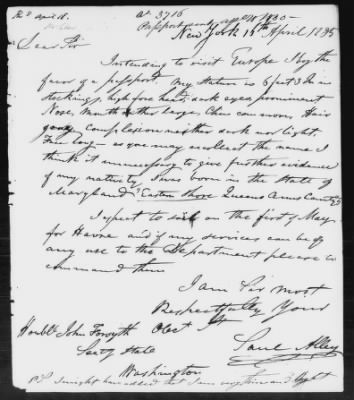 at 3716
New York 15th April 1835
Dear Sir
Intending to visit Europe I beg the
favor of a passport. My Stature is 6 feet 3 in
Stockings, high fore head, dark eyes, prominent
Nose, Mouth rather large, Chin common, Hair
gray Complexion neither dark nor light.
Face long - as you may recollect the name I
think it unnecessary to give further evidence
of my nativity I was born in the State of
Maryland Eastern Shore Queens Anns County
I expect to sail on the first of May
for Havre and if any services can be of
any use to the Department please to
command them
I am Sir most
Respectfully Your
Obet St
Saul Alley
Honble John Forsyth
Secty State
Washington
PS I might have added that I am